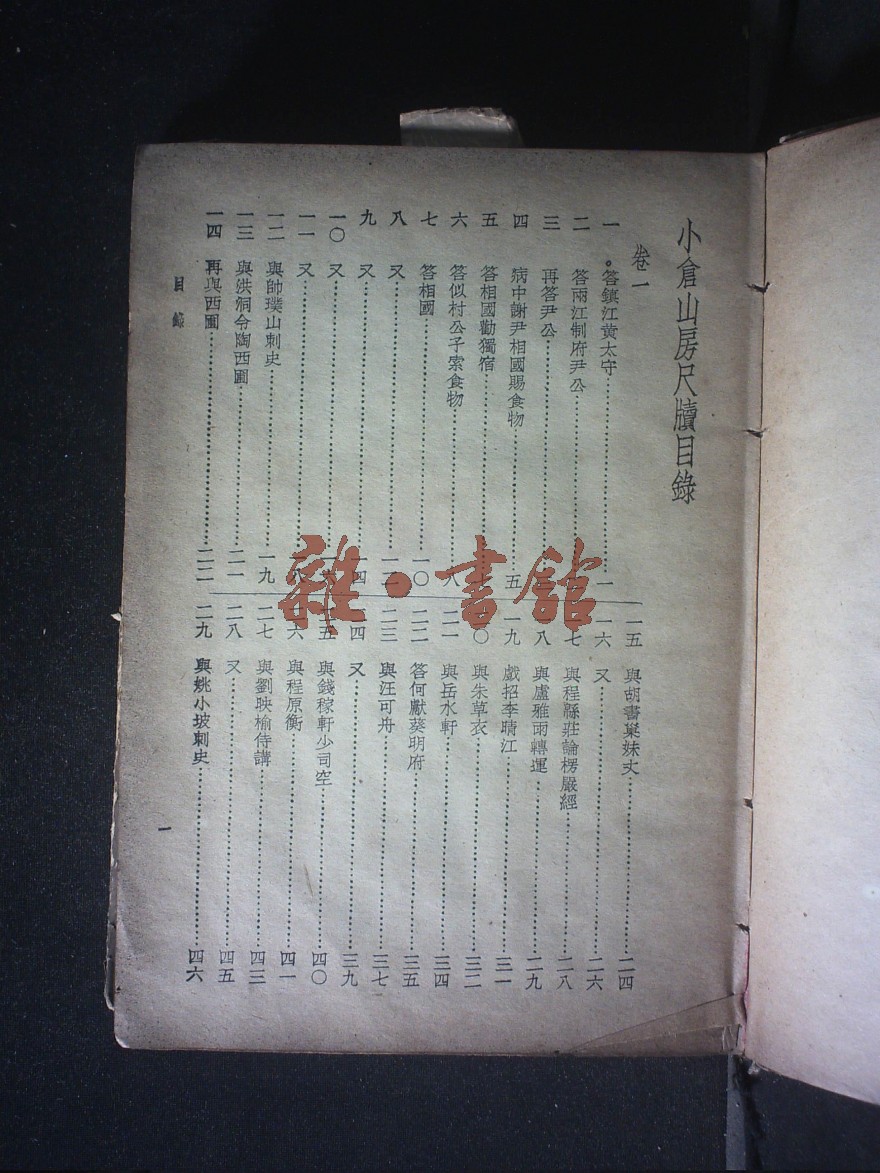 小倉山房尺牘目錄
卷一
一 答鎮江黃太守 一
二 答兩江制府尹公
三 再答尹公
四 病中謝尹相國賜食物 五
五 答相國勸獨宿
六 答似村公子索食物 八
七 答相國 一〇
八 又
九 又 一四
一〇 又 一六
一一 又 一八
一二 與帥璞山刺史 一九
一三 與洪洞令陶西圃 二一
一四 再與西圃 二二
一五 與胡書巢妹丈 二四
一六 又 二六
七 與程縣莊論楞嚴經 二八
八 與盧雅雨轉運 二九
一九 戲招李晴江 三一
〇 與朱草衣 三二
二一 與岳水軒 三四
二二 答何獻葵明府 三五
二三 與汪可舟 三七
四 又 三九
五 與錢稼軒少司空 四〇
六 與程原衡 四一
二七 與劉映榆侍講 四三
二八 又 四五
二九 與姚小坡刺史 四六
目錄
一
雜·書館